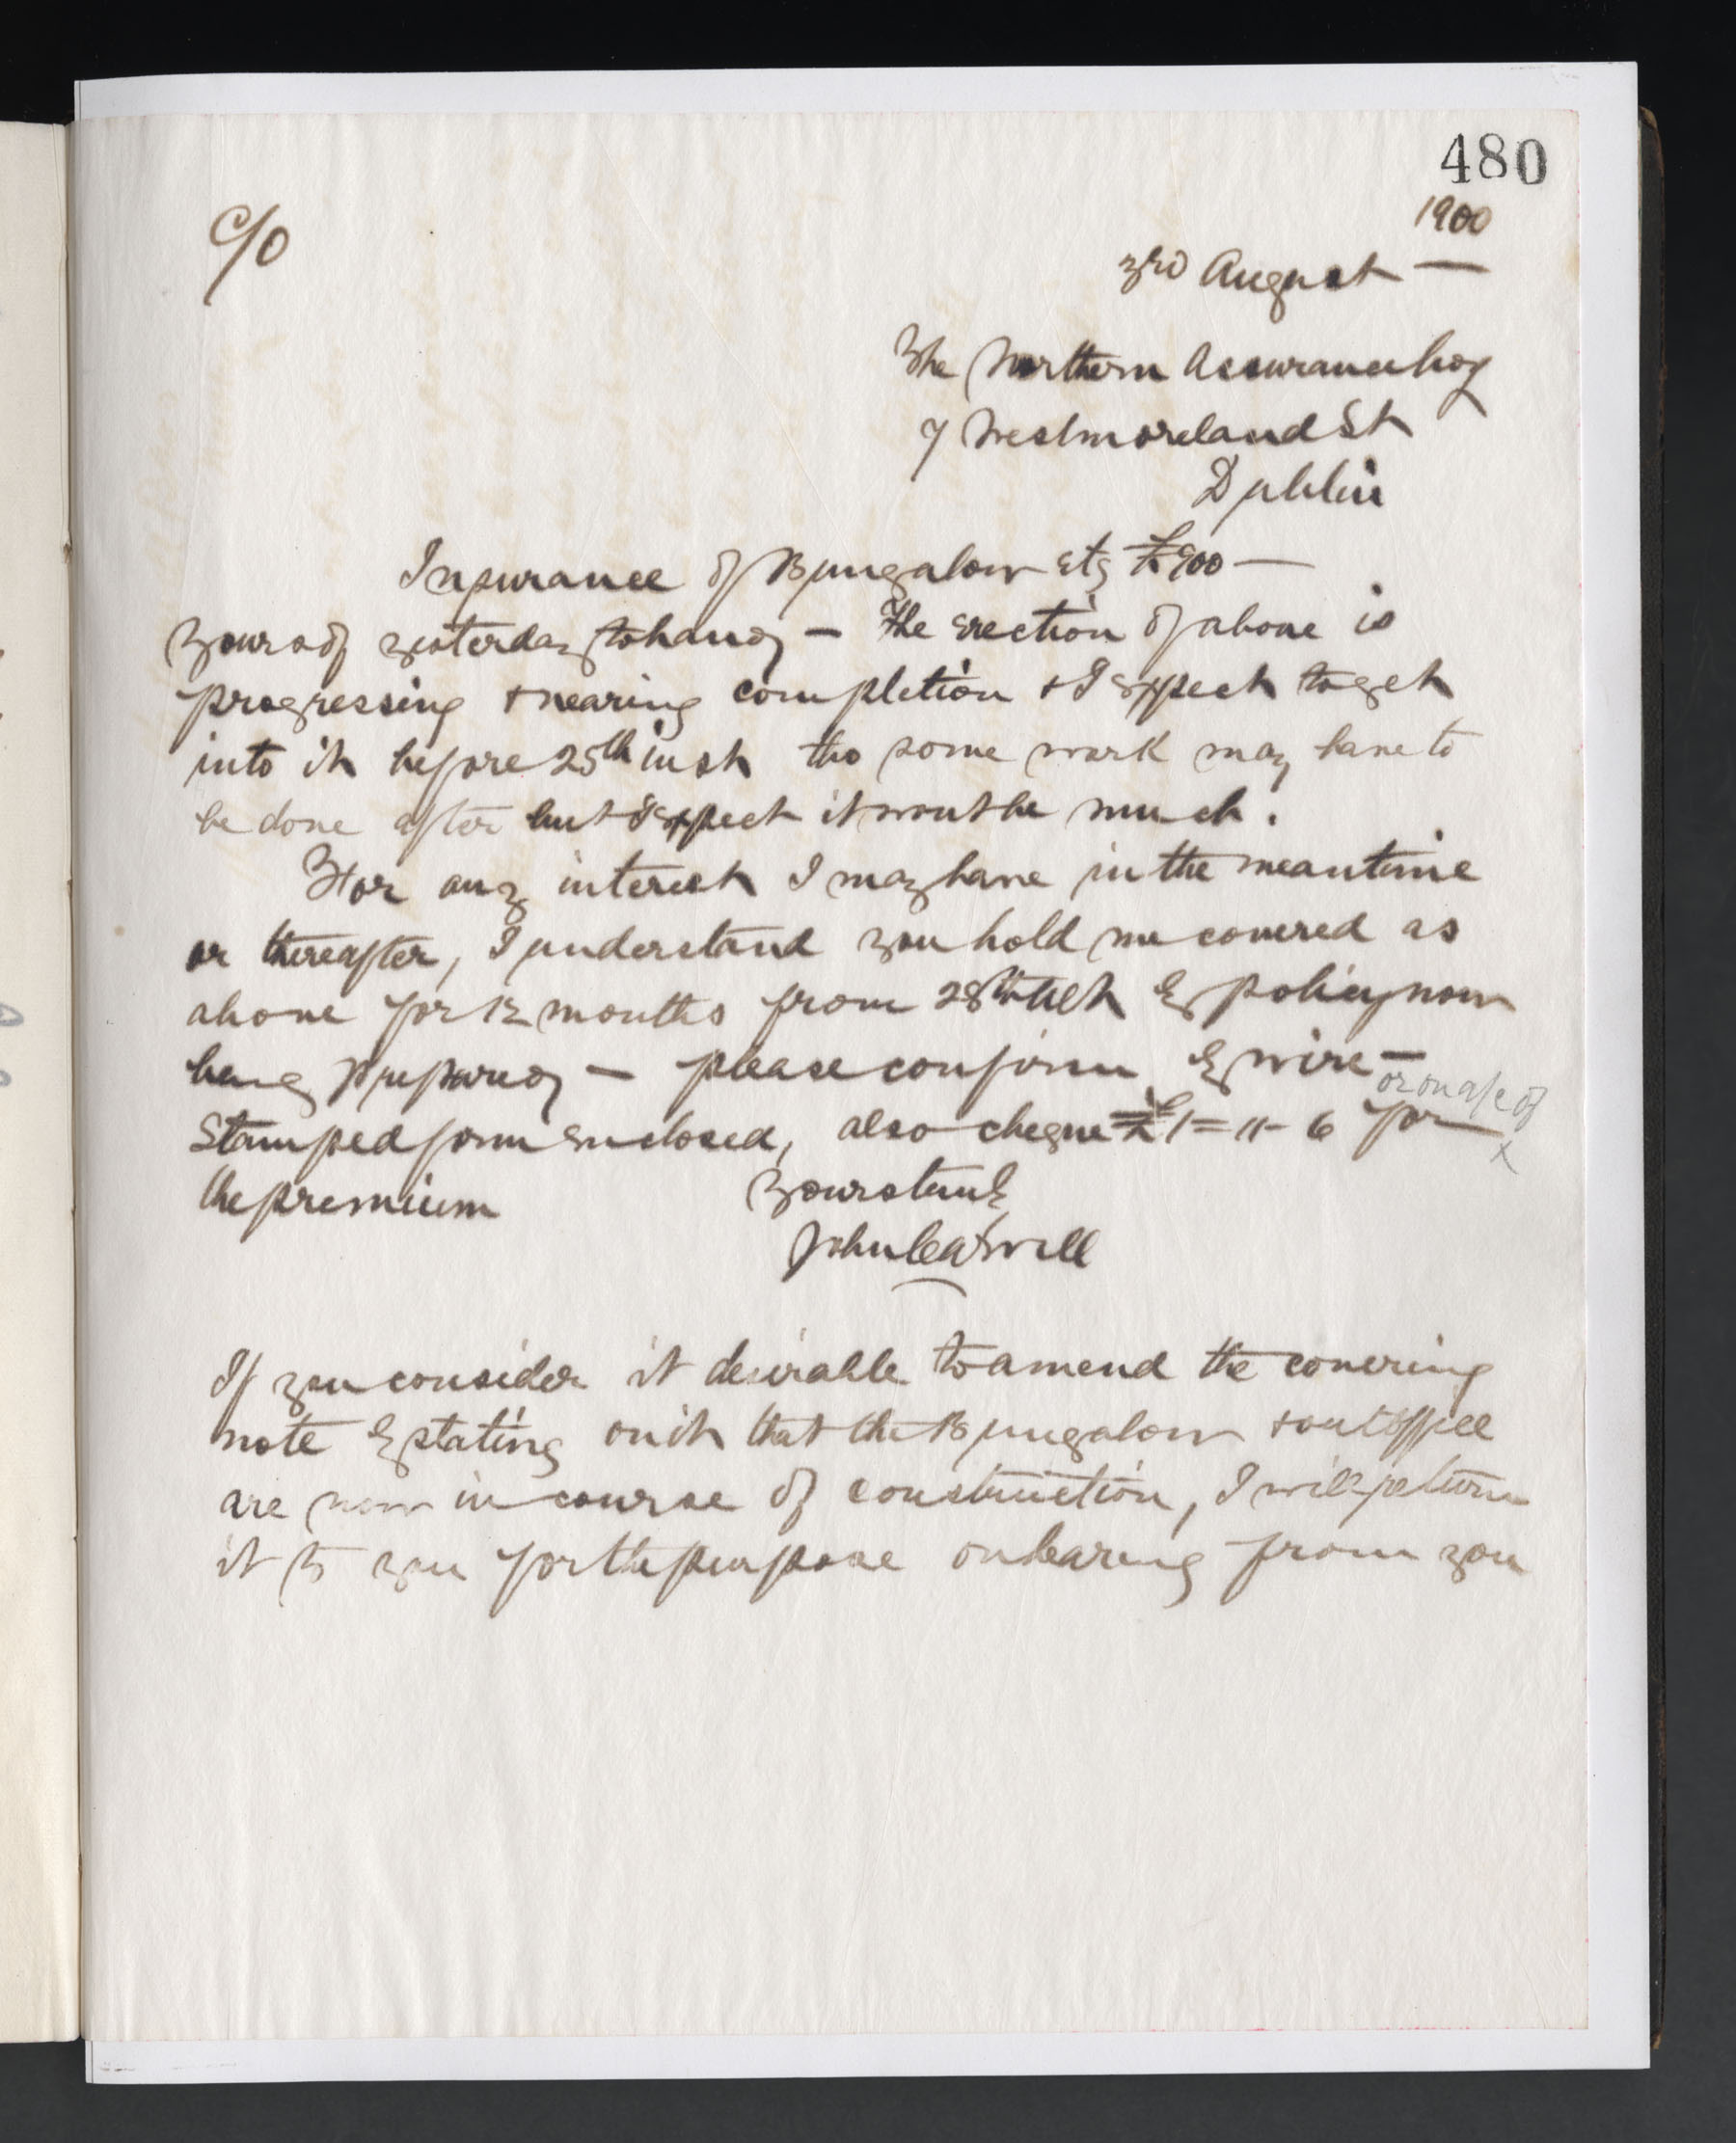 480
1900
C/O
3rd August —
The Northern Assurance Coy
7 Westmoreland St
Dublin
Insurance of Bungalow etc £900 —
Yours of yesterday to hand — The erection of above is
progressing & nearing completion & I expect to get
into it before 25th inst tho some work may have to
be done after but I expect it wont be much.
For any interest I may have in the meantime
or thereafter, I understand you hold me covered as
above for 12 months from 28th ult & policy now
being prepared — please confirm by wire —
or on a/c of
Stamped form enclosed, also cheque £1=11-6 for
x
the premium
Yours truly
John
If you consider it desirable to amend the covering
note by stating on it that the Bungalow & out office
are now in course of construction, I will return
it to you for the purpose on hearing from you